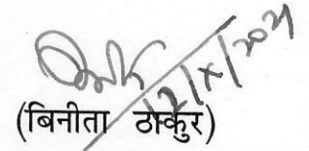 12/X/2021
(बिनीता ठाकुर)